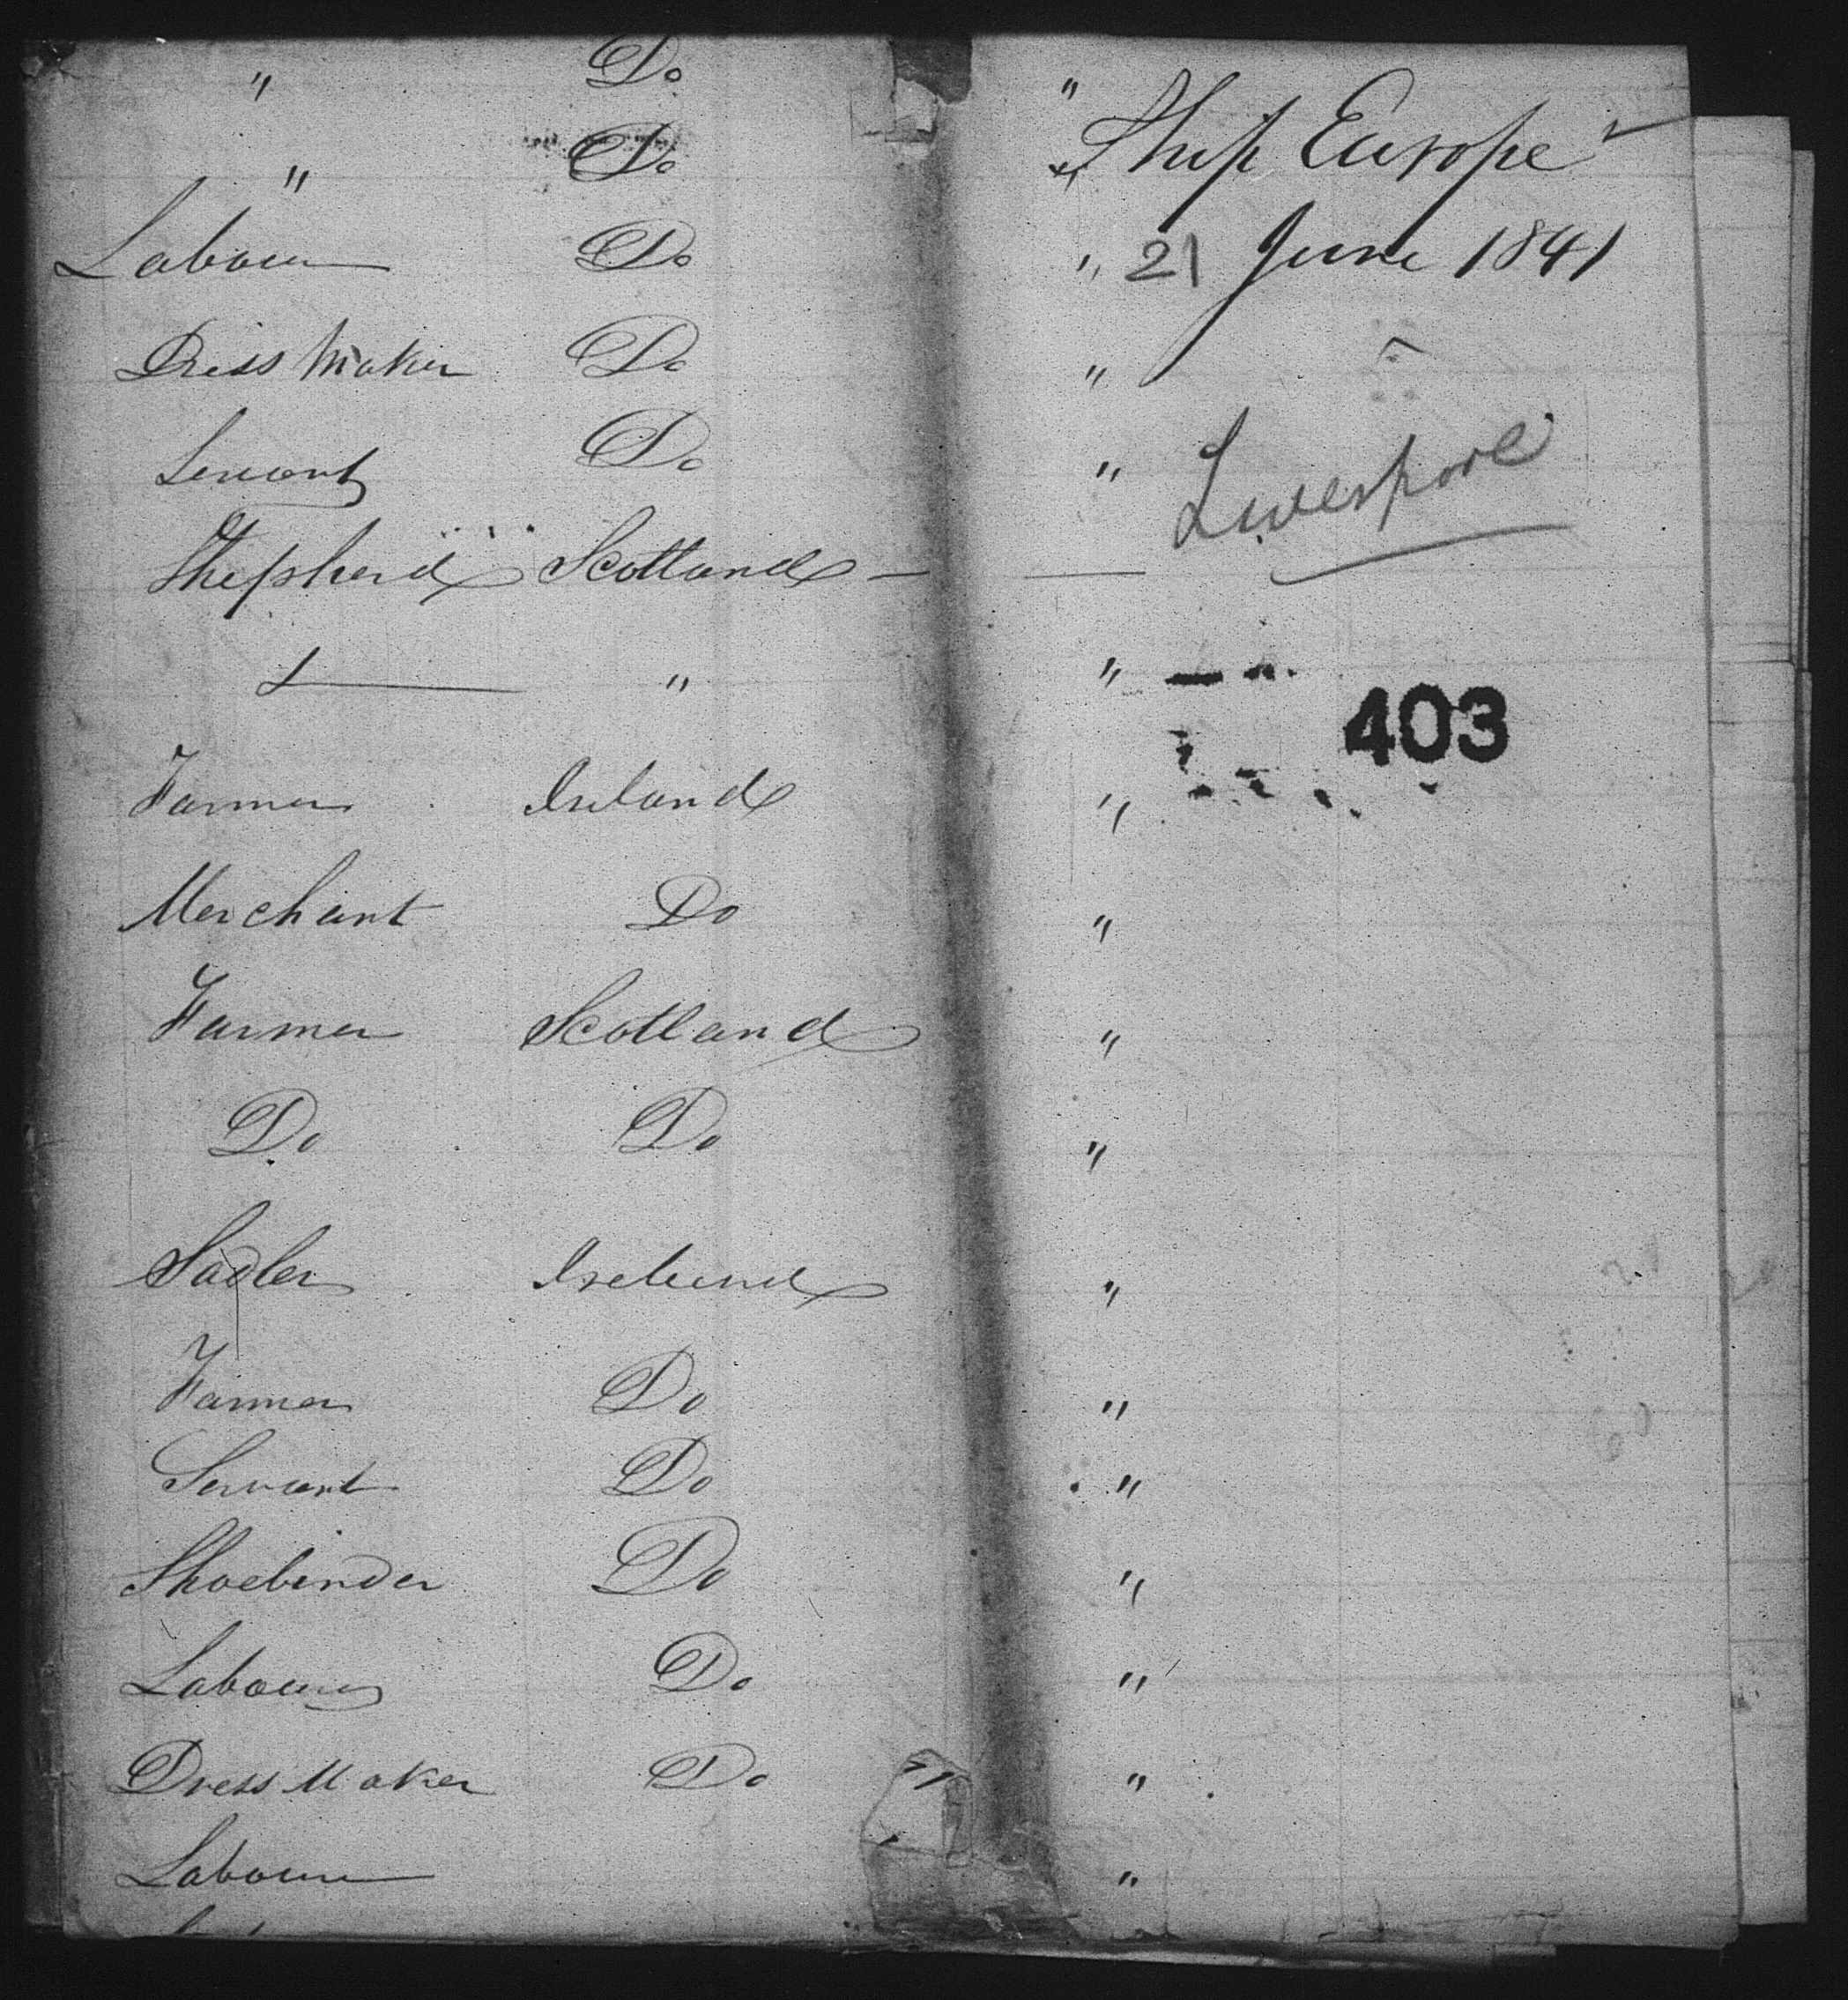 " Do "
" Do Ship Europe
Labourer Do " 21 June 1841
Dress Maker Do "
Servant Do " Liverpool
Shepherd Scotland —
" "
Farmer Ireland "
403
Merchant Do "
Farmer Scotland "
Do Do "
Sadler Ireland "
Farmer Do "
Servant Do "
Shoebinder Do "
Labourer Do "
Dress Maker Do "
Labourer "